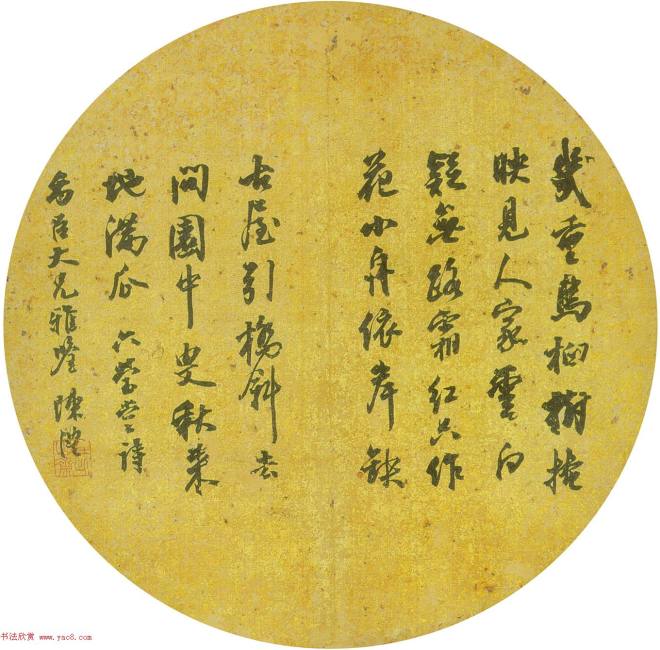 幾重烏桕樹掩
映見人家雲白
疑無路霜紅只作
花小舟依岸缺
古屋引橋斜去
問園中叟秋來
地滿瓜 六瑩堂詩
大兄雅鑒 陳澧
书法欣赏 www.yac8.com